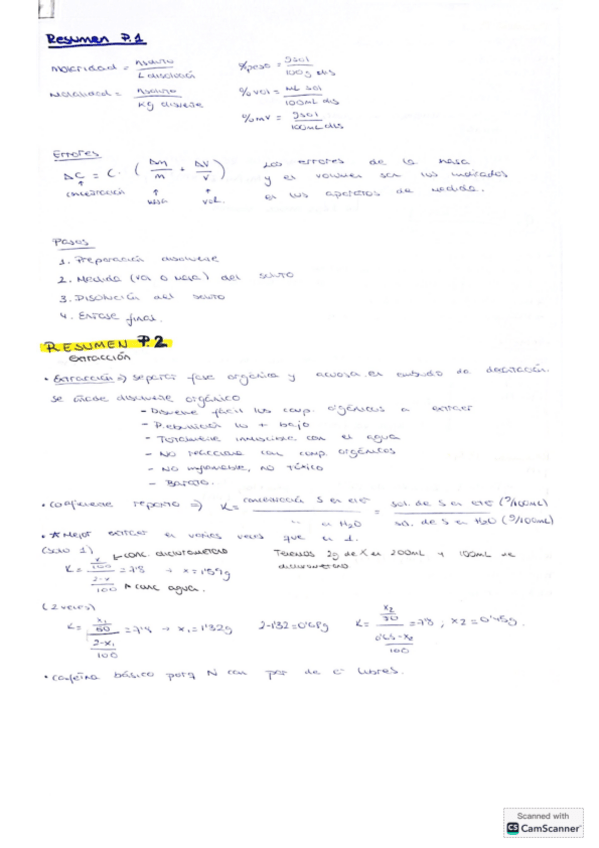 Resumen P.1
Molaridad = nsoluto / L disolución
%peso = gsol / 100g dis
Molalidad = nsoluto / Kg disolvente
%vol = mL sol / 100mL dis
%mv = gsol / 100mL dis
Errores
ΔC = C · ( Δm / m + ΔV / V )
concentración masa vol.
Los errores de la masa
y el volumen son los indicados
en los aparatos de medida.
Pasos
1. Preparación disolvente
2. Medida (vol o masa) del soluto
3. Disolución del soluto
4. Enrase final.
RESUMEN P.2
extracción
• Extracción => separar fase orgánica y acuosa en embudo de decantación.
se añade disolvente orgánico
- Disuelve fácil los comp. orgánicos a extraer
- P.ebullición + bajo
- Totalmente inmiscible con el agua
- No reaccione con comp. orgánicos
- No inflamable, no tóxico
- Barato.
• coeficiente reparto => K = concentración S en / " en H2O = sol. de S en (g/100mL) / sol. de S en H2O (g/100mL)
• *Mejor extraer en varias veces que en 1.
(solo 1) conc. diclorometano
Tenemos 2g de X en 200mL + 100mL de
diclorometano
K = x/100 / 2-x/100 = 7'8 → x = 1'59g
conc agua.
(2 veces)
K = x1/50 / 2-x1/100 = 7'8 → x1 = 1'32g 2-1'32 = 0'68g K = x2/50 / 0'68-x2/100 = 7'8 ; x2 = 0'45g.
• cafeína básico porq N con par de e- libres.
Scanned with
CS CamScanner